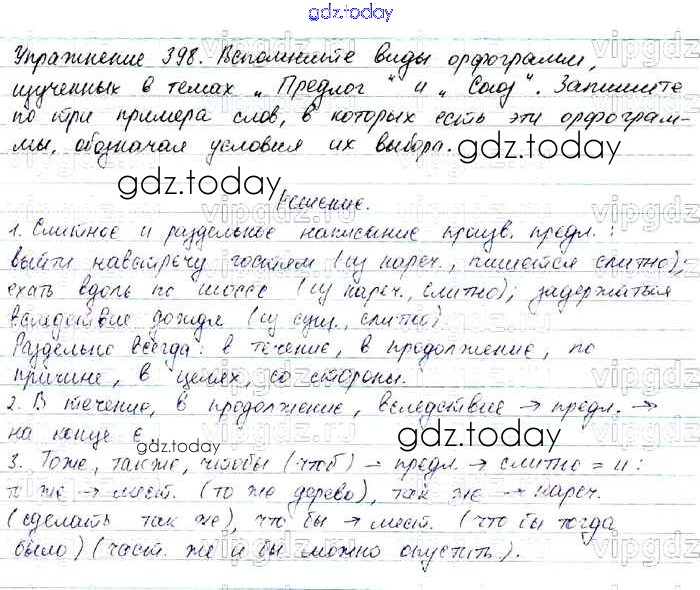 gdz.today
Упражнение 398. Вспомните виды орфограмм,
изученных в темах „Предлог“ и „Союз“. Запишите
по три примера слов, в которых есть эти орфограм-
мы, обозначая условия их выбора.
gdz.today
gdz.today
Решение.
1. Слитное и раздельное написание произв. предл.:
выйти навстречу гостям (из нареч., пишется слитно);
ехать вдоль по шоссе (из нареч., слитно); задержаться
вследствие дождя (из сущ., слитно).
Раздельно всегда: в течение, в продолжение, по
причине, в целях, со стороны.
2. В течение, в продолжение, вследствие → предл. →
на конце е.
gdz.today
3. Тоже, также, чтобы (чтоб) – предл. → слитно = и:
то же → мест. (то же дерево), так же → нареч.
(сделать так же), что бы → мест. (что бы тогда
было) (част. же и бы можно опустить).
gdz.today